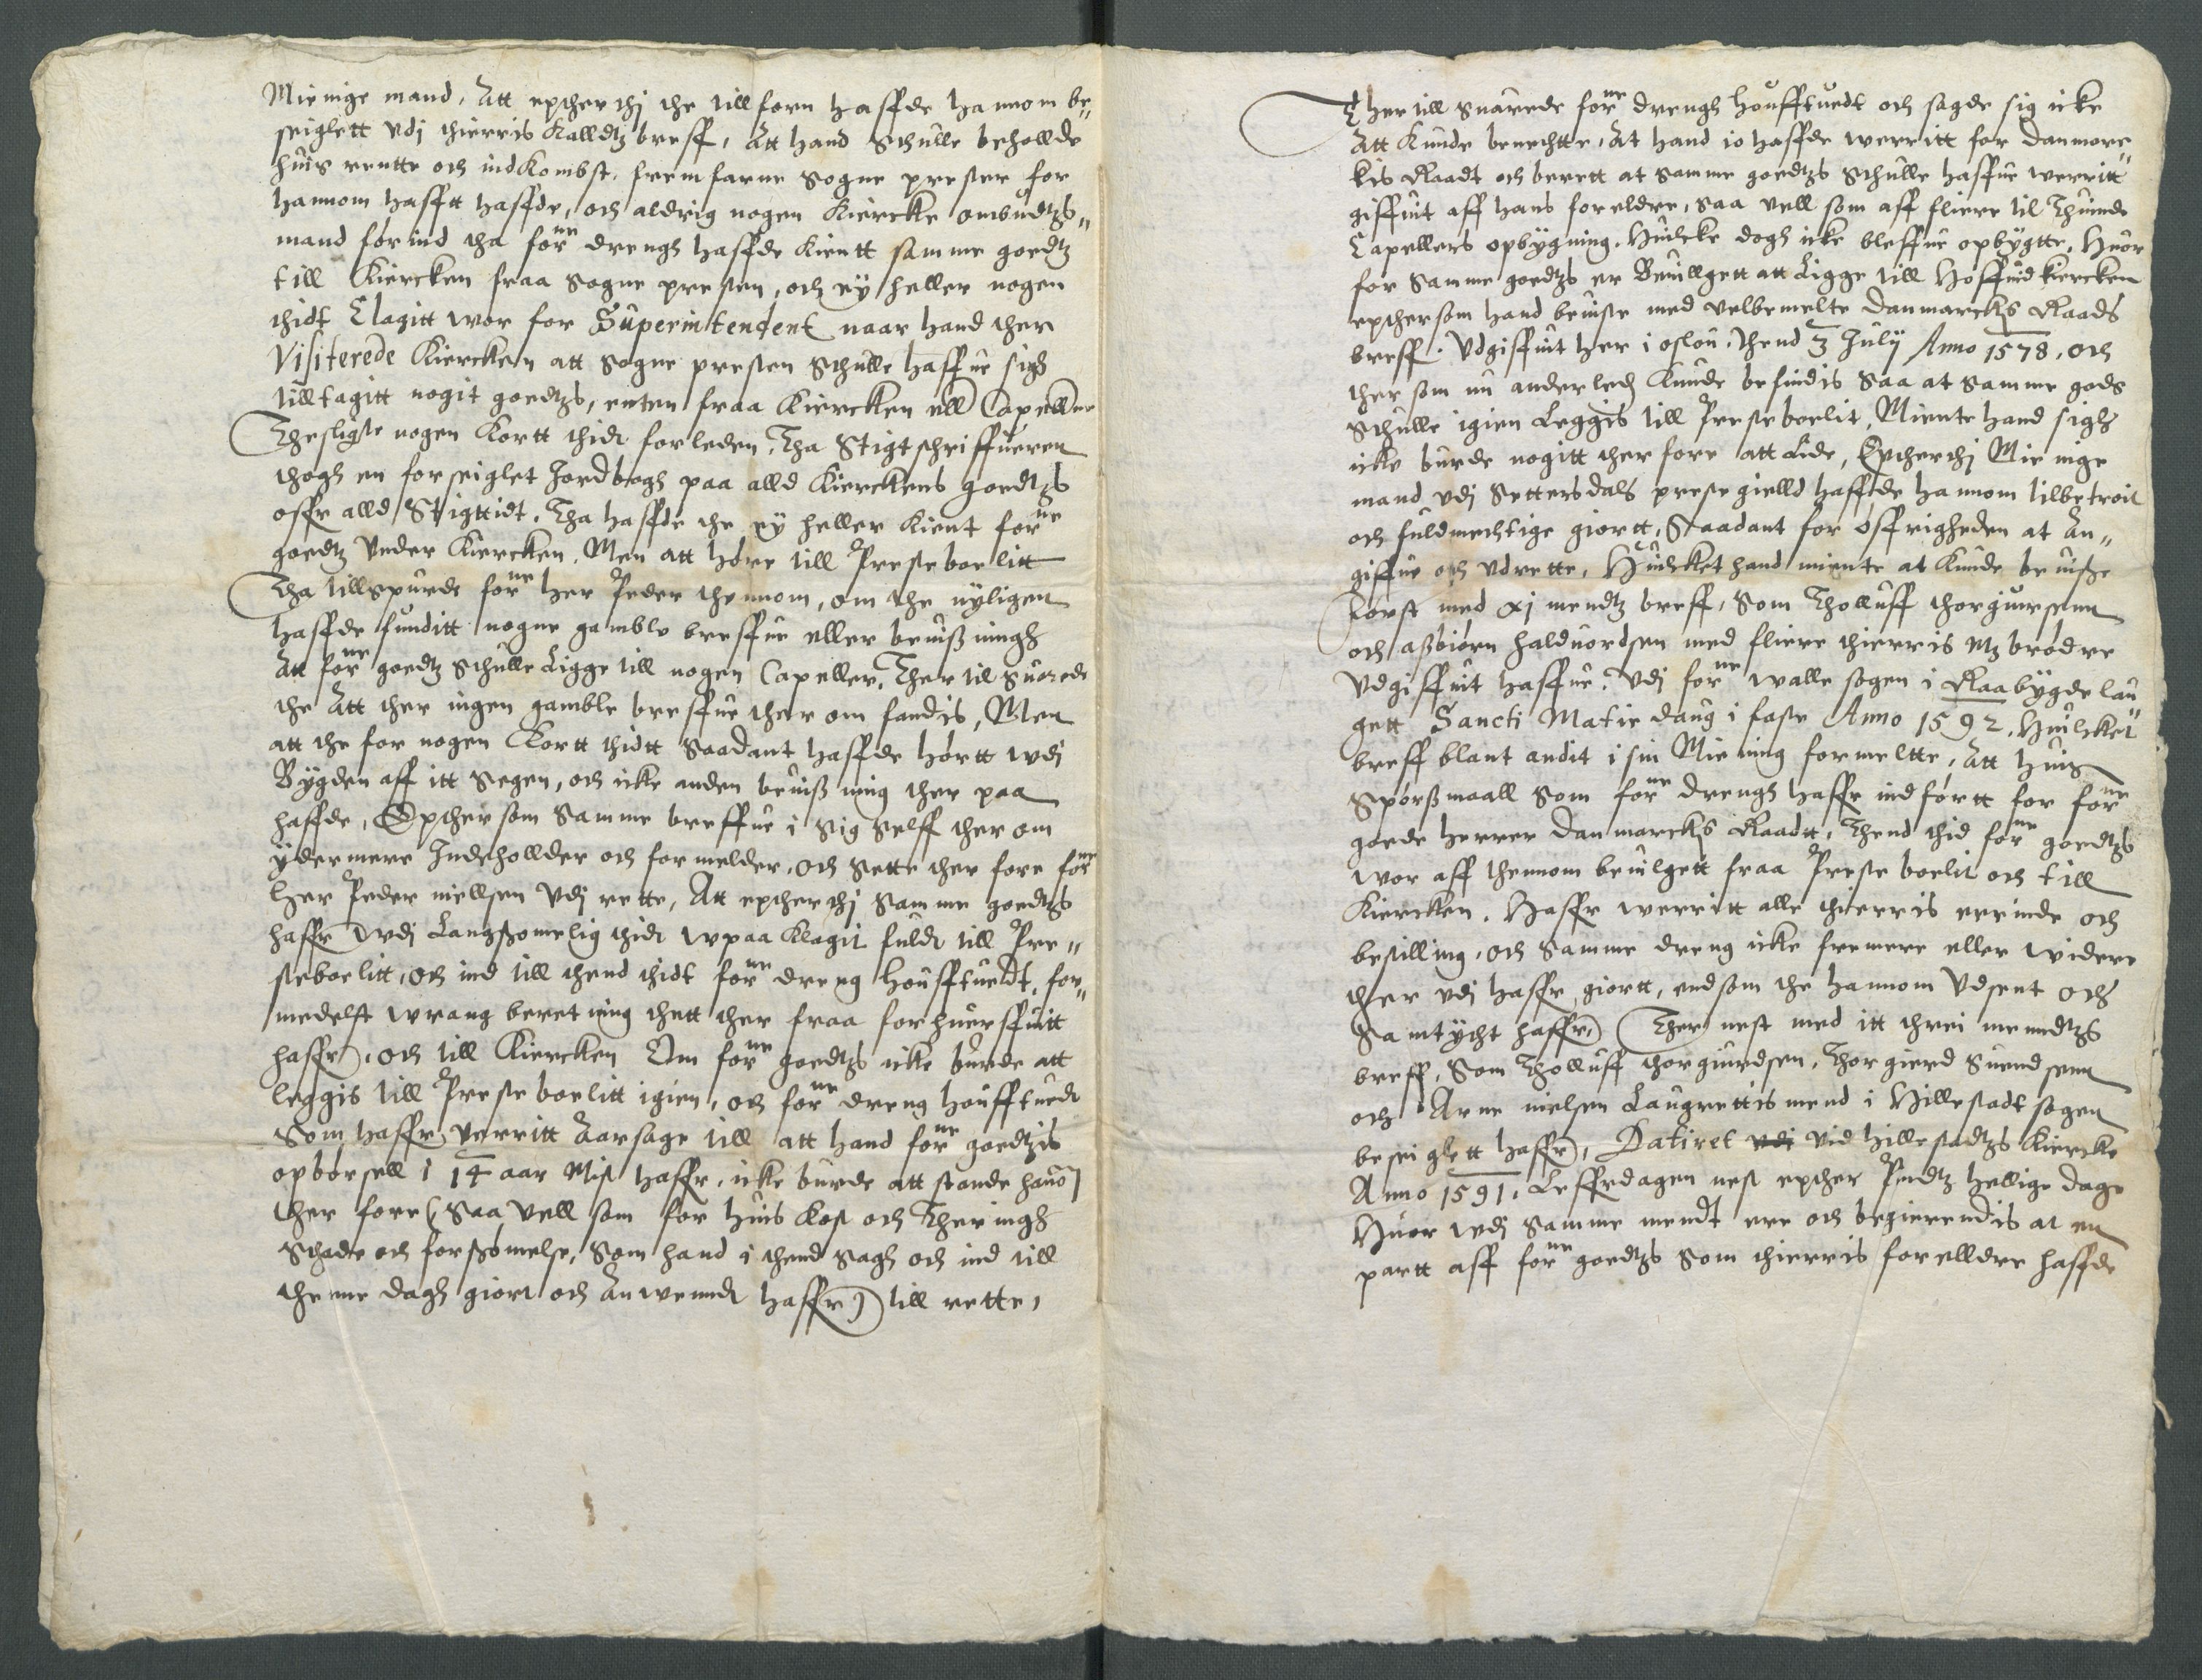 Mienige mand, Att epther thj the tillforn haffde hannom be„
seiglett vdj thierris Kalldtz breff, Att hand Schulle behollde
huis rentte och indkombst, fremfarne Sogne prester for
hannom hafftt haffde, och aldrig nogen Kiercke ombudtzs„
mand förind tha forne drengh haffde Kientt samme goedtz
till Kiercken fraa Sogne presten, och eÿ heller nogen
thidt Clagitt wor for Superintendent naar hand ther
Visiterede Kiercken att Sogne presten Schulle haffue sigh
tilltagitt nogit goedtzs, enten fraa Kiercken ell Capeller
Thesligste nogen Kortt thidt forleden, Tha Stigtschriffueren
thogh en forseiglet Jordbogh paa alld Kierckens goedtzs
offr alld Stigttidt, Tha haffde the eÿ heller Kient forne
goedtz Vnder Kiercken, Men att höre till Preste boelitt
Tha tillspurde forne her Peder thennom, om the nÿligen
haffde funditt nogne gamble breffue eller beuißningh
Att forne goedtz Schulle Ligge till nogen Capeller, Ther til Suarede
the Att ther ingen gamble breffue ther om fandis, Men
att the for nogen Kortt thidtt Saadant haffde hörtt wdj
Bÿgden aff itt Segen, och icke anden beuißning ther paa
haffde, Epthersom Samme breffue i Sig Selff ther om
ÿdermere Indehollder och formelder, och Sette ther fore forne
Her Peder niellsen Vdj rette, Att epther thj Samme goedtzs
haffr wdj Langßomelig thidt wpaa Klagit fuldt till Pre„
steboelitt, och ind till thend thidt forne dreng Houfftuedt, for„
medelst wrang beretning thett ther fraa forhuerffuitt
haffr, och till Kiercken Om forne goedtzs icke burde att
leggis till Preste boelitt igien, och forne dreng Houfftuedt
Som haffr verritt Aarsage till att hand forne goedtzis
opbörsell i 14 aar Mist haffr, icke burde att stande hanom
ther fore (Saa vell som for huis Kost och Theringh
Schade och forßömelse, Som hand i thend Sagh och ind till
thenne dagh giort och Anwenndt haffr) till rette,
Ther till Suarede forne drengh Houfftuedt och sagde sig icke
Att Kunde benechtte, At hand io haffde werritt for danmorc
kis Raadt och berett at Samme goedtzs Schulle haffue werritt
giffuit aff hans foreldre, Saa vell som aff fliere til Thuinde
Capellers opbÿgning, Huilcke dogh icke bleffue opbÿgtte, Huor
for Samme goedtzs er Beuillgett att Ligge till Hoffuidkiercken
epthersom hand beuiste med velbemelte danmarckis Raads
breff. Vdgiffuit her i oslou, thend 3 Julÿ Anno 1578, och
ther som nu anderledh Kunde befindis Saa at Samme gods
Schulle igien Leggis till Presteboelit, Miente hand sigh
icke burde nogitt ther fore att Lide, Epther thj Mienige
mand vdj Settersdals preste gielld haffde hannom tilbetroit
och fuldmechtige giortt, Saadant for öffrigheden at An„
giffue och vdrette, Huilcket hand miente at Kunde beuiße
Först med xj mendtz breff, Som Tholluff thorgiuersenn
och aßbiörn halduordsen med fliere thierris M brödre
Vdgiffuit haffue, Vdj forne walle sogen i Raabÿgdelau„
gett Sancti Matie daug i faste Anno 1592, Huilcket
breff blant andit i sin Miening formeltte, Att huis
Spörßmaall Som forne drengh haffr indförtt for forne
goede Herrer danmarckis Raadtt, Thend thid forne goedtzs
wor aff thennom beuilgett fraa Preste boelit och till
Kiercken, Haffr werritt alle thierris erinde och
bestilling, och Samme dreng icke fremere eller widere
ther vdj haffr giortt, end som the hannom Vdsent och
Samtÿcht haffr, Ther nest med itt threi menndtzs
breff, Som Tholluff thorgiurdsen, Thorgierd Suendsenn
och Arne nielsen Laugrettismend i Hillestadt sogen
beseiglett haffr, Datiret vdi vid Hillestadtzs Kiercke
Anno 1591, Leffredagen nest epther Pindtz hellige dage
Huor wdj Samme mendt ere och begierendis at en
partt aff forne goedtzs Som thierris forelldre haffde